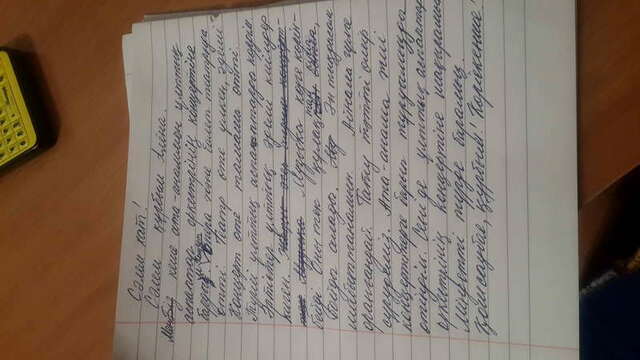 Сәлем хат!
Сәлем құрбым Алёна.
Біз кеше ата-анаммен ұлттық
аспаптар оркестрінің концертіне
бардық. Опера және балет театрында
өтті. Театр өте үлкен, әдемі.
Концерт өте тамаша өтті.
Түрлі ұлттық аспаптарды көрдім.
Әртістер ұлттық әдемі киімдер
киген. Музыка көрге көрін-
бейді. Оны тек құлақтан
бойды алады. Ән тыңдасам
шабыттанамын. Айнала гүлге
оранғандай. Тату тәтті өмір
сүрудеміз. Ата-анама жиі
концерттерге барып тұруымызды
өтіндім. Сені де ұлттық аспаптар
оркестрінің концертіне шақырамын.
Міндетті түрде барамыз.
Қош сау бол, құрбым! Көріскенше!